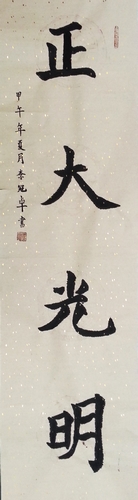 正大光明
甲午年夏月李冠卓書